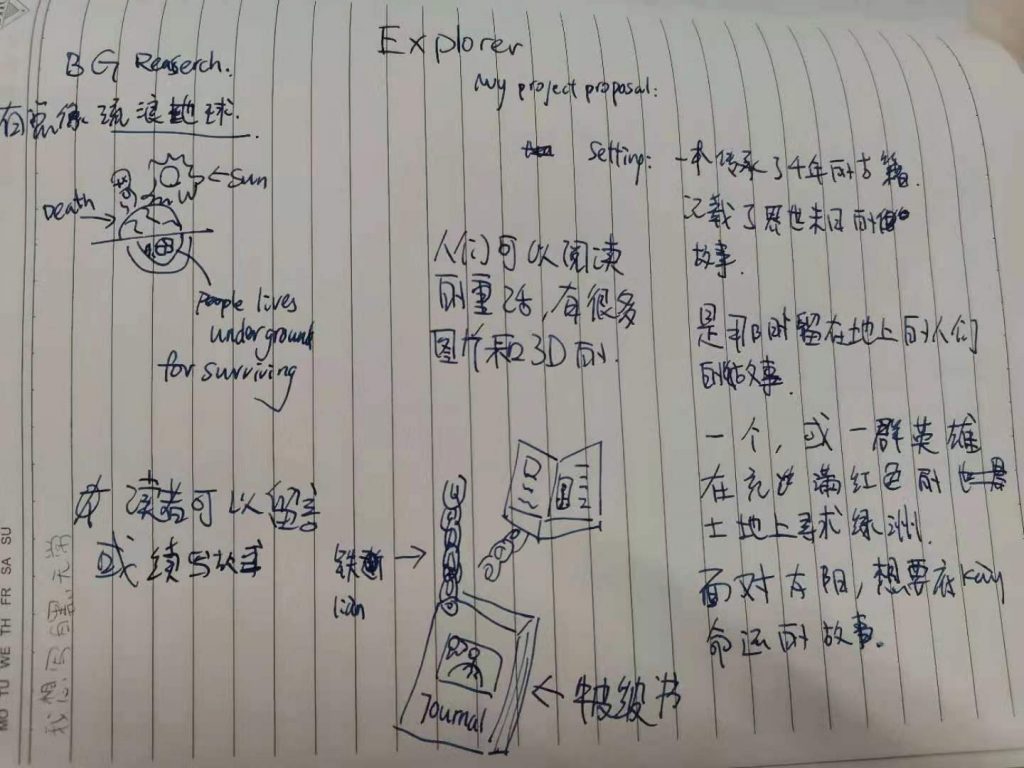 Explorer
BG Reaserch.
流浪地球.
Sun
Death
People lives
underground
for surviving
my project proposal:
Setting: 一本传承了千年的古籍.
记载了思世末日的
故事.
是那时留在地上的人们
的故事.
一个,或一群英雄
在充满红色的
土地上寻求绿洲.
面对太阳,想要
命运的故事.
人们可以阅读
的重话,有很多
图片和3D的.
读者可以留言
或续写故事
铁
lian
Journal
牛皮纹书
MO TU WE TH FR SA SU